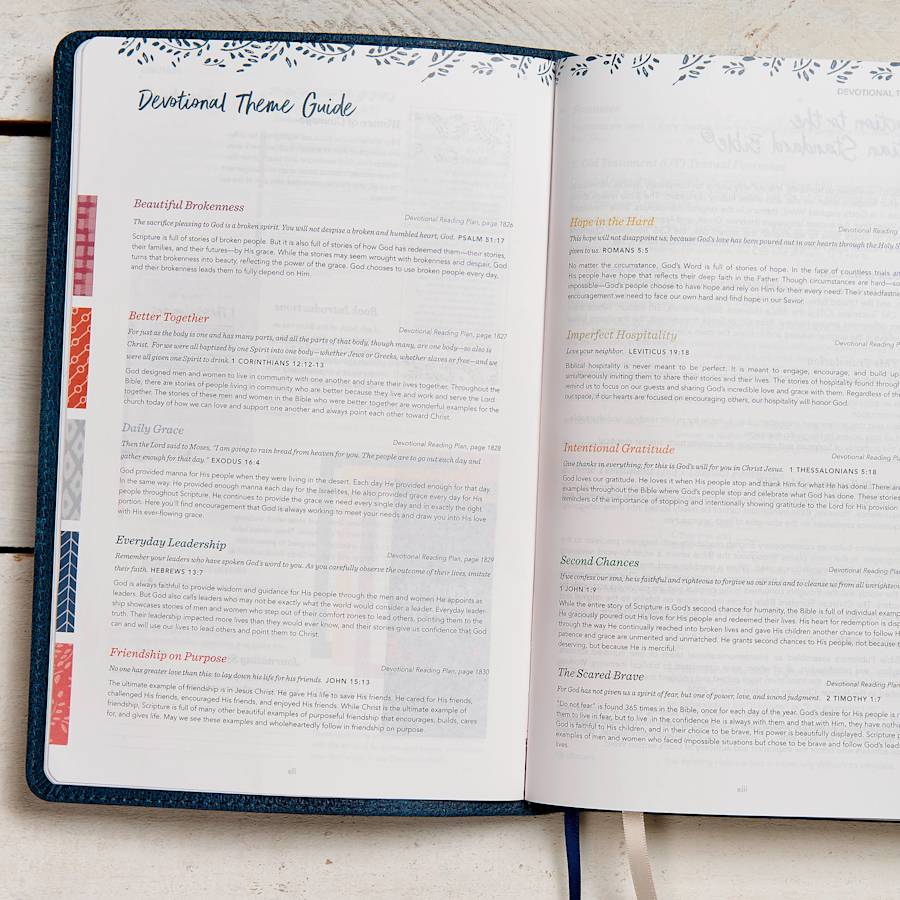 Devotional Theme Guide
Beautiful Brokenness
Devotional Reading Plan, page 1826
The sacrifice pleasing to God is a broken spirit. You will not despise a broken and humbled heart, God. PSALM 51:17
Scripture is full of stories of broken people. But it is also full of stories of how God has redeemed them—their stories,
their families, and their futures—by His grace. While the stories may seem wrought with brokenness and despair, God
turns that brokenness into beauty, reflecting the power of the grace. God chooses to use broken people every day,
and their brokenness leads them to fully depend on Him.
Better Together
Devotional Reading Plan, page 1827
For just as the body is one and has many parts, and all the parts of that body, though many, are one body—so also is
Christ. For we were all baptized by one Spirit into one body—whether Jews or Greeks, whether slaves or free—and we
were all given one Spirit to drink. 1 CORINTHIANS 12:12-13
God designed men and women to live in community with one another and share their lives together. Throughout the
Bible, there are stories of people living in community who are better because they live and work and serve the Lord
together. The stories of these men and women in the Bible who were better together are wonderful examples for the
church today of how we can love and support one another and always point each other toward Christ.
Daily Grace
Devotional Reading Plan, page 1828
Then the Lord said to Moses, "I am going to rain bread from heaven for you. The people are to go out each day and
gather enough for that day." EXODUS 16:4
God provided manna for His people when they were living in the desert. Each day He provided enough for that day.
In the same way, He provided enough manna each day for the Israelites. He also provided grace every day for His
people throughout Scripture. He continues to provide the grace we need every single day and in exactly the right
portion. Here you'll find encouragement that God is always working to meet your needs and draw you into His love
with His ever-flowing grace.
Everyday Leadership
Devotional Reading Plan, page 1829
Remember your leaders who have spoken God's word to you. As you carefully observe the outcome of their lives, imitate
their faith. HEBREWS 13:7
God is always faithful to provide wisdom and guidance for His people through the men and women He appoints as
leaders. But God also calls leaders who may not be exactly what the world would consider a leader. Everyday leader-
ship showcases stories of men and women who step out of their comfort zones to lead others, pointing them to the
truth. Their leadership impacted more lives than they would ever know, and their stories give us confidence that God
can and will use our lives to lead others and point them to Christ.
Friendship on Purpose
Devotional Reading Plan, page 1830
No one has greater love than this: to lay down his life for his friends. JOHN 15:13
The ultimate example of friendship is in Jesus Christ. He gave His life to save His friends. He cared for His friends,
challenged His friends, encouraged His friends, and enjoyed His friends. While Christ is the ultimate example of
friendship, Scripture is full of many other beautiful examples of purposeful friendship that encourages, builds, cares
for, and gives life. May we see these examples and wholeheartedly follow in friendship on purpose.
xii
DEVOTIONAL T
Hope in the Hard
Devotional Reading
This hope will not disappoint us, because God's love has been poured out in our hearts through the Holy S
given to us. ROMANS 5:5
No matter the circumstance, God's Word is full of stories of hope. In the face of countless trials an
His people have hope that reflects their deep faith in the Father. Though circumstances are hard—so
impossible—God's people choose to have hope and rely on Him for their every need. Their steadfastne
encouragement we need to face our own hard and find hope in our Savior.
Imperfect Hospitality
Devotional Reading
Love your neighbor. LEVITICUS 19:18
Biblical hospitality is never meant to be perfect. It is meant to engage, encourage, and build up
simultaneously inviting them to share their stories and their lives. The stories of hospitality found through
remind us to focus on our guests and sharing God's incredible love and grace with them. Regardless of th
our space, if our hearts are focused on encouraging others, our hospitality will honor God.
Intentional Gratitude
Devotional Reading
Give thanks in everything; for this is God's will for you in Christ Jesus. 1 THESSALONIANS 5:18
God loves our gratitude. He loves it when His people stop and thank Him for what He has done. There are
examples throughout the Bible where God's people stop and celebrate what God has done. These stories
reminders of the importance of stopping and intentionally showing gratitude to the Lord for His provision
Second Chances
Devotional Reading
If we confess our sins, he is faithful and righteous to forgive us our sins and to cleanse us from all unrighteou
1 JOHN 1:9
While the entire story of Scripture is God's second chance for humanity, the Bible is full of individual examp
He graciously poured out His love for His people and redeemed their lives. His heart for redemption is disp
through the way He continually reached into broken lives and gave His children another chance to follow H
patience and grace are unmerited and unmatched. He grants second chances to His people, not because t
deserving, but because He is merciful.
The Scared Brave
Devotional Reading
For God has not given us a spirit of fear, but one of power, love, and sound judgment. 2 TIMOTHY 1:7
"Do not fear" is found 365 times in the Bible, once for each day of the year. God's desire for His people is n
them to live in fear, but to live in the confidence He is always with them and that with Him, they have nothi
God is faithful to His children, and in their choice to be brave, His power is beautifully displayed. Scripture p
examples of men and women who faced impossible situations but chose to be brave and follow God's lead
lives.
xiii